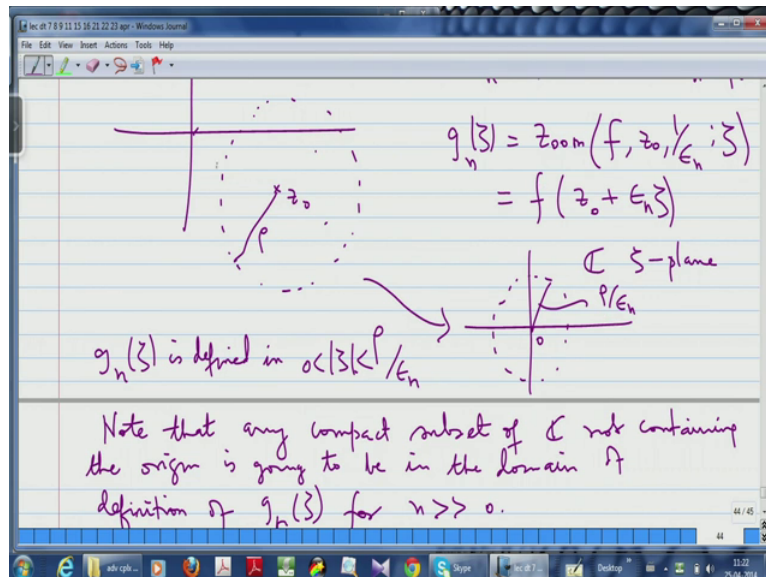 lec dt 7 8 9 11 15 16 21 22 23 apr - Windows Journal
File Edit View Insert Actions Tools Help
g_n(ζ) = zoom(f, z_0, 1/ε_n; ζ)
= f(z_0 + ε_n ζ)
z_0
ρ
ℂ ζ-plane
ρ/ε_n
0
g_n(ζ) is defined in 0<|ζ|<ρ/ε_n
Note that any compact subset of ℂ not containing
the origin is going to be in the domain of
definition of g_n(ζ) for n >> 0.
44 / 45
44
adv cplx ...
Skype
lec dt 7 ...
Desktop
11:22
25-04-2014